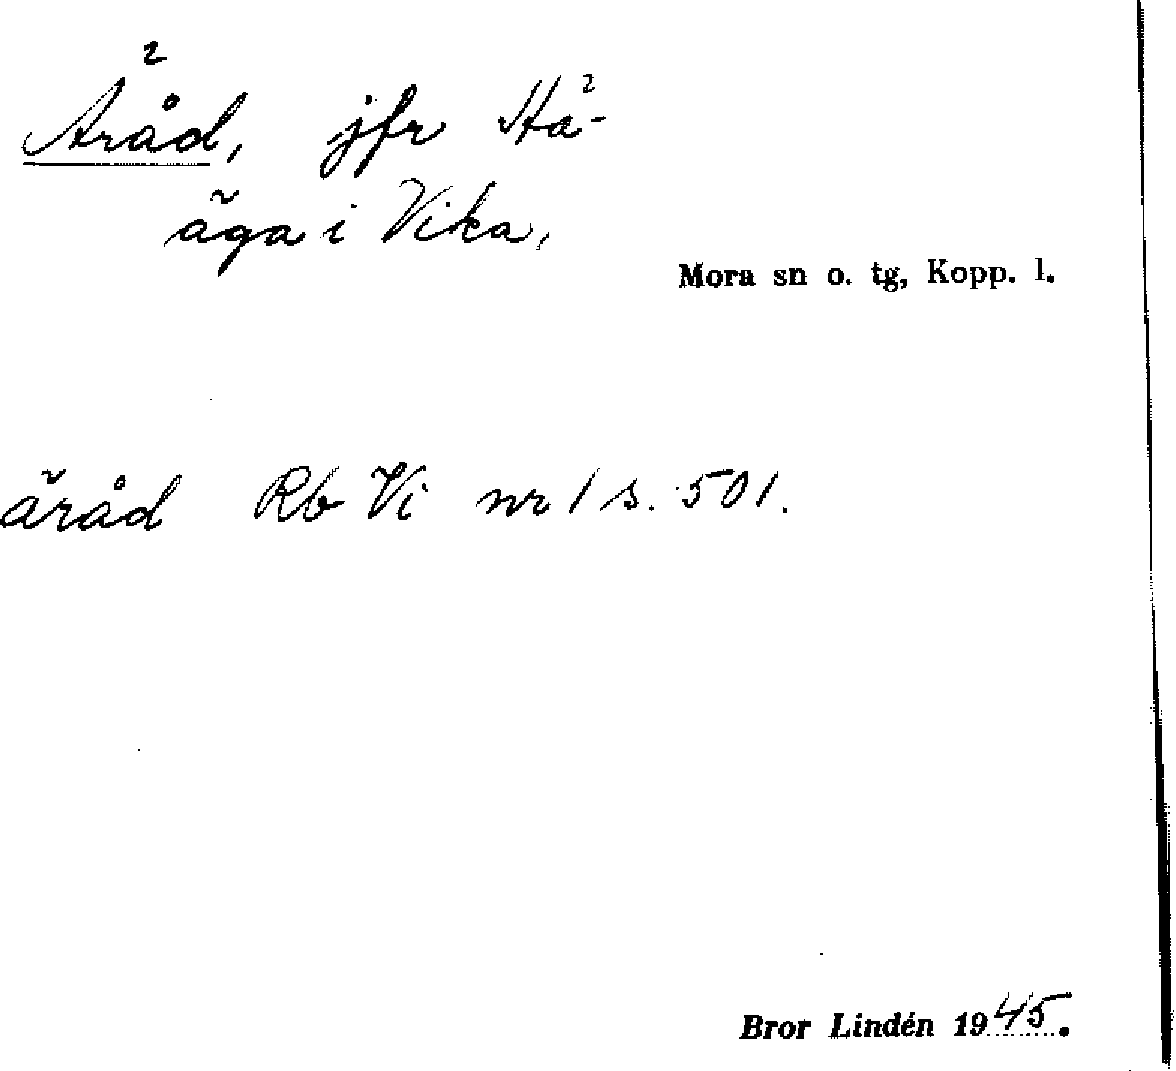 Äråd, jfr Stä-
äga i Vika,
Mora sn o. tg, Kopp. l.
äråd Rb Vi nr 1 s. 501.
Bror Lindén 1945.